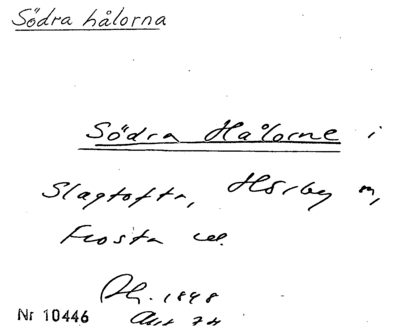 Södra hålorna
Södra Hålorne i
Slagtofta, Hörby m,
Frosta
1848
Nr 10446